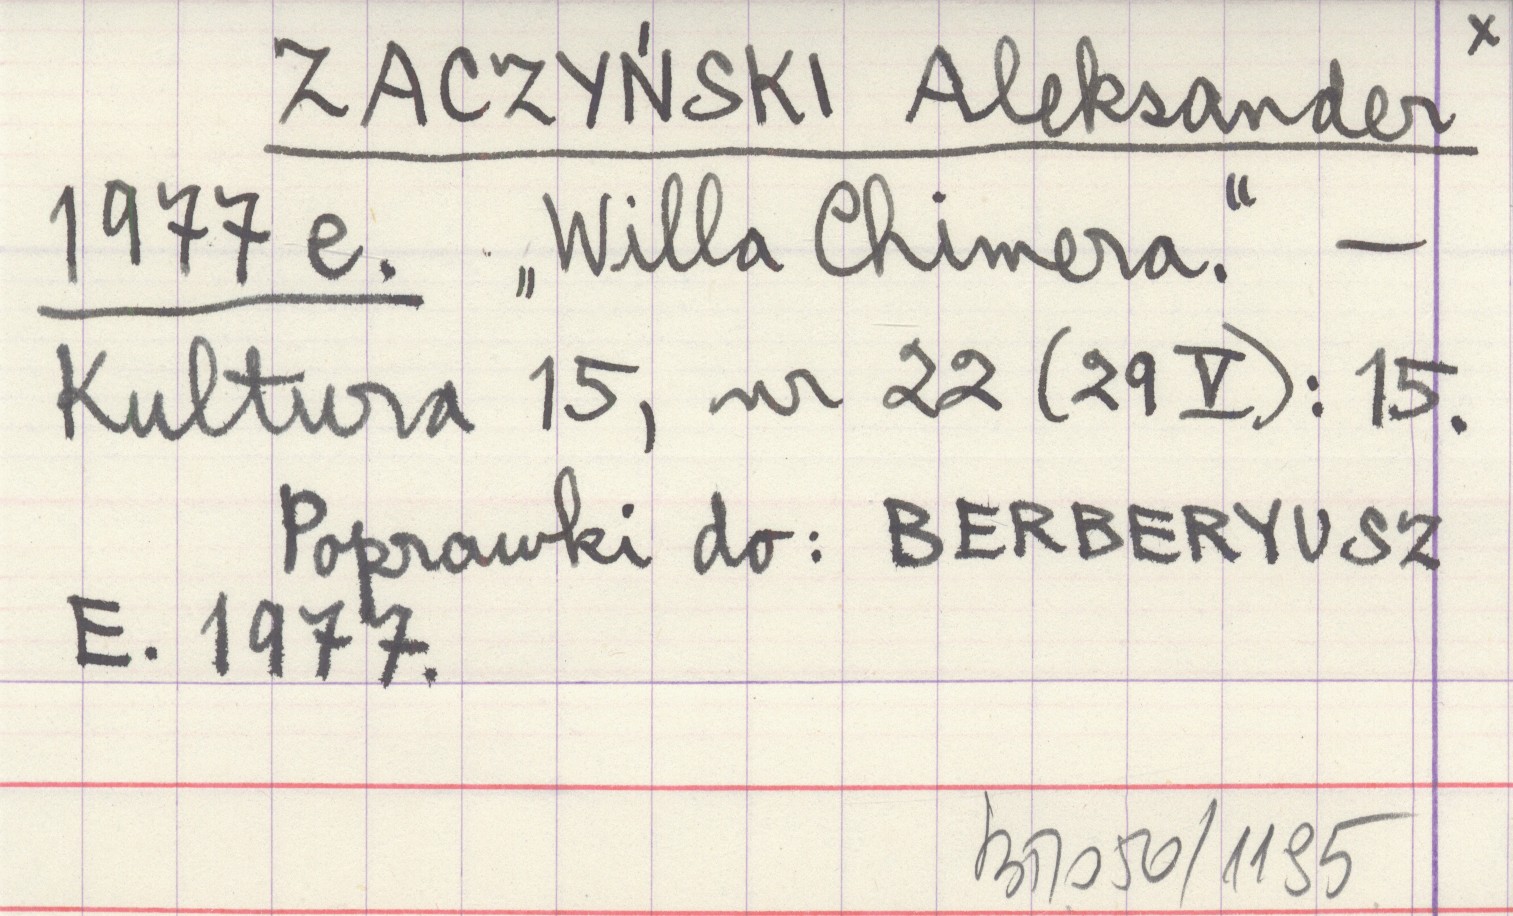 x
ZACZYŃSKI Aleksander
1977 e. „Willa Chimera.“ —
Kultura 15, nr 22 (29 V): 15.
Poprawki do: BERBERYUSZ
E. 1977.
50/1195